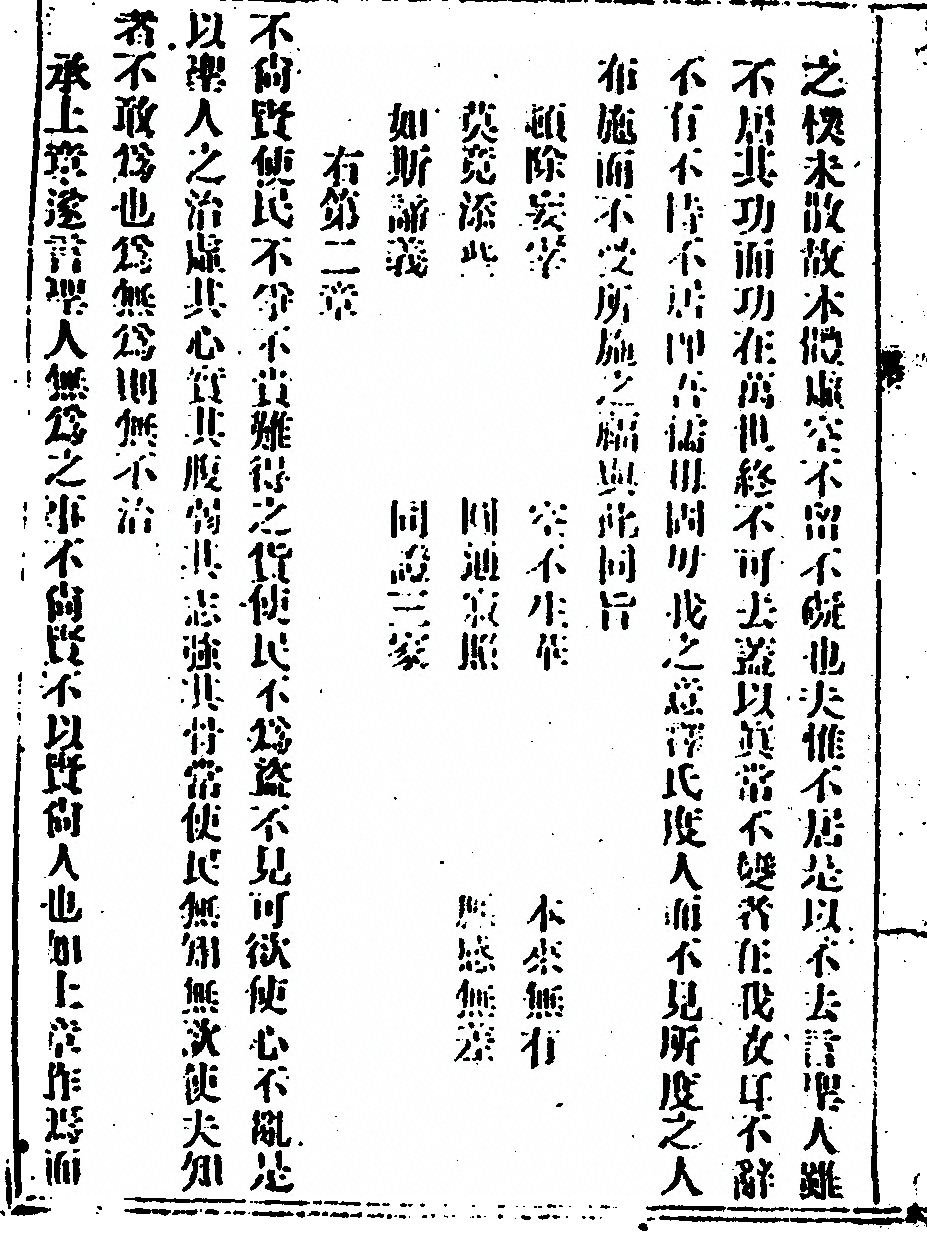 之樸未散故本體虛空不留不礙也夫惟不居是以不去言聖人雖
不居其功而功在萬世終不可去蓋以眞常不變者在我故耳不辭
不有不恃不居卽吾儒毋固毋我之意釋氏度人而不見所度之人
布施而不受所施之福與此同旨
頓除妄宰 空不生華 本來無有
莫竟添些 圓通寂照 應感無差
如斯諦義 同證三家
右第二章
不尙賢使民不爭不貴難得之貨使民不爲盜不見可欲使心不亂是
以聖人之治虛其心實其腹弱其志強其骨常使民無知無欲使夫知
者不敢爲也爲無爲則無不治
承上章遂言聖人無爲之事不尙賢不以賢尙人也如上章作焉而